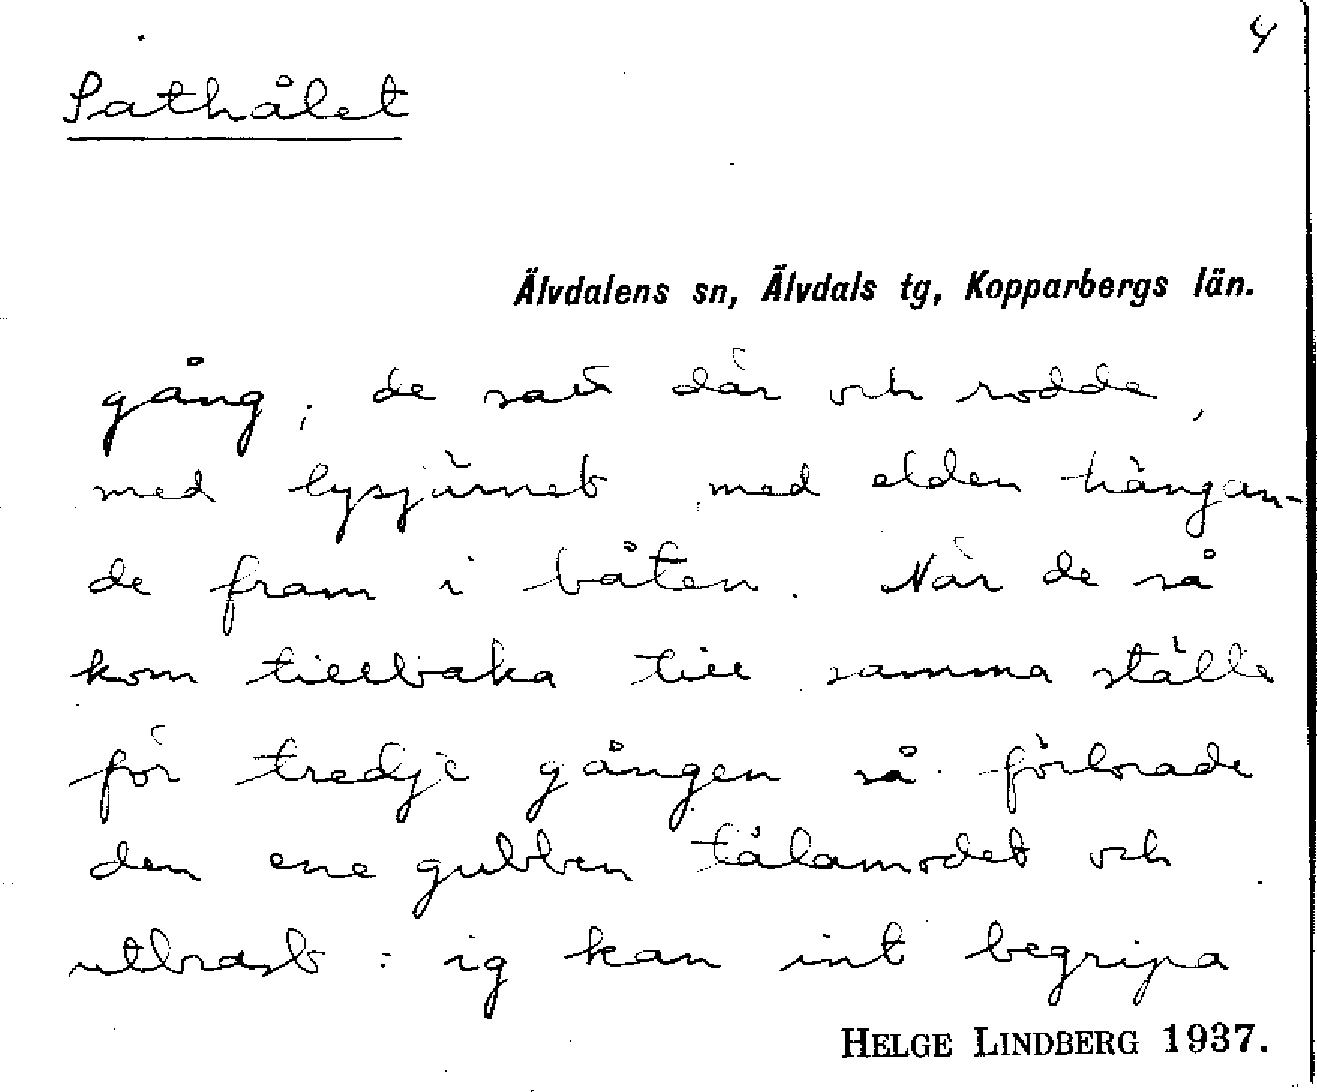 4
Sathålet
Älvdalens sn, Älvdals tg, Kopparbergs län.
gång, de satt där och rodde,
med lysjärnet med elden hängan-
de fram i båten. När de så
kom tillbaka till samma ställe
för tredje gången så förlorade
den ene gubben tålamodet och
utbrast: ig kan int begripa
HELGE LINDBERG 1937.